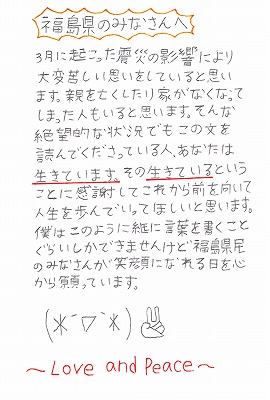 福島県のみなさんへ
3月に起こった震災の影響により
大変苦しい思いをしていると思い
ます。親を亡くしたり家がなくなって
しまった人もいると思います。そんな
絶望的な状況でもこの文を
読んでくださっている人、あなたは
生きています。その生きているという
ことに感謝してこれから前を向いて
人生を歩んでいってほしいと思います。
僕はこのように紙に言葉を書くこと
ぐらいしかできませんけど福島県民
のみなさんが笑顔になれる日を心
から願っています。
(*´▽`*)
～Love and Peace～